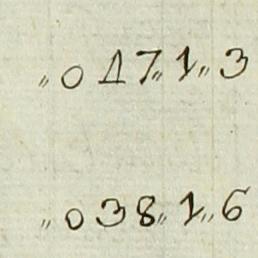 „ 0 17 „ 1 „ 3
„ 0 38 „ 1 „ 6